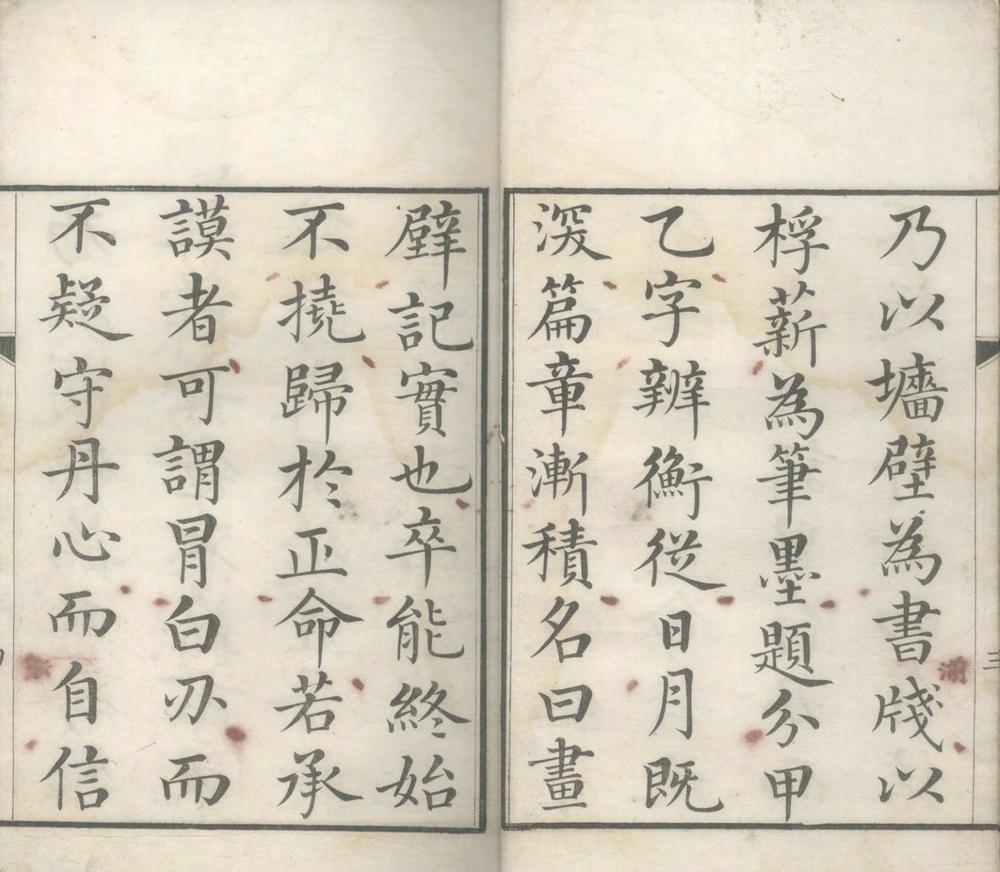 乃以墻壁為書牋以
桴薪為筆墨題分甲
乙字辨衡從日月既
深篇章漸積名曰畫
壁記實也卒能終始
不撓歸於正命若承
謨者可謂冐白刃而
不疑守丹心而自信
三